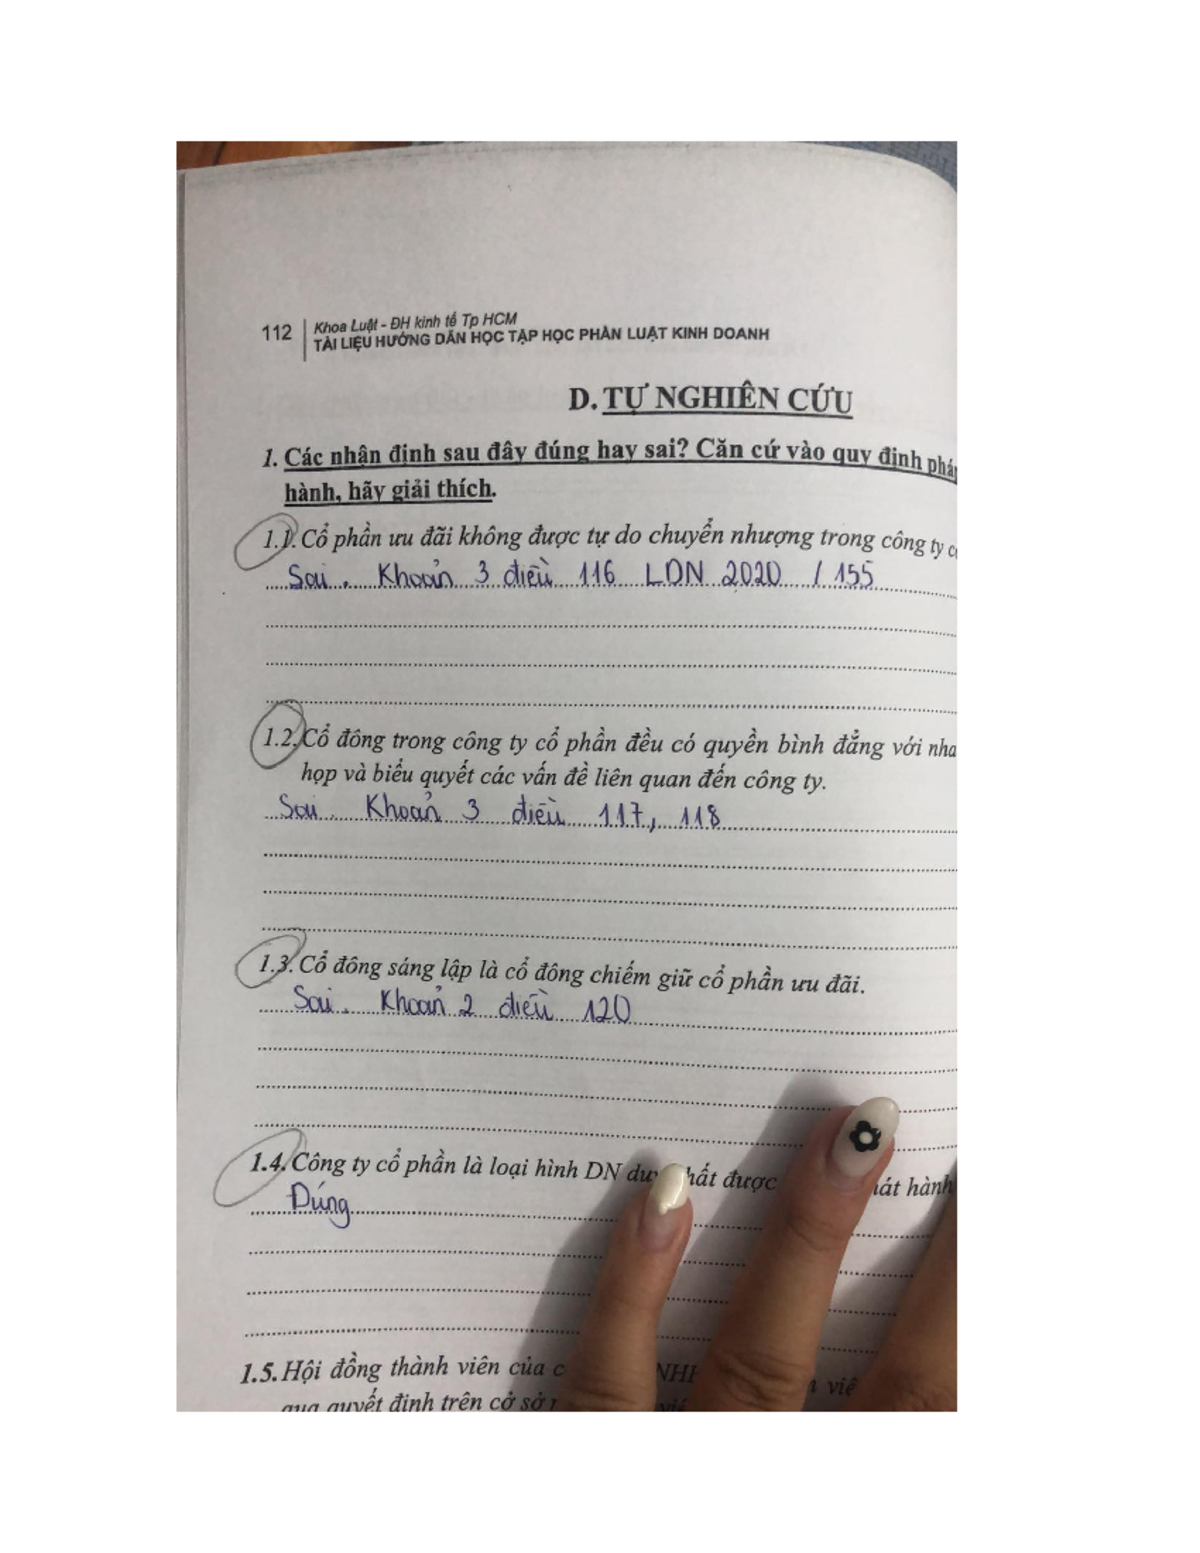 112 Khoa Luật - ĐH kinh tế Tp HCM
TÀI LIỆU HƯỚNG DẪN HỌC TẬP HỌC PHẦN LUẬT KINH DOANH
D. TỰ NGHIÊN CỨU
1. Các nhận định sau đây đúng hay sai? Căn cứ vào quy định
hành, hãy giải thích.
1.1. Cổ phần ưu đãi không được tự do chuyển nhượng trong công ty
Sai. Khoản 3 điều 116 LDN 2020 / 155
1.2. Cổ đông trong công ty cổ phần đều có quyền bình đẳng với
họp và biểu quyết các vấn đề liên quan đến công ty.
Sai. Khoản 3 điều 117, 118
1.3. Cổ đông sáng lập là cổ đông chiếm giữ cổ phần ưu đãi.
Sai. Khoản 2 điều 120
1.4. Công ty cổ phần là loại hình DN được hành
Đúng
1.5. Hội đồng thành viên của
qua quyết định trên cở sở